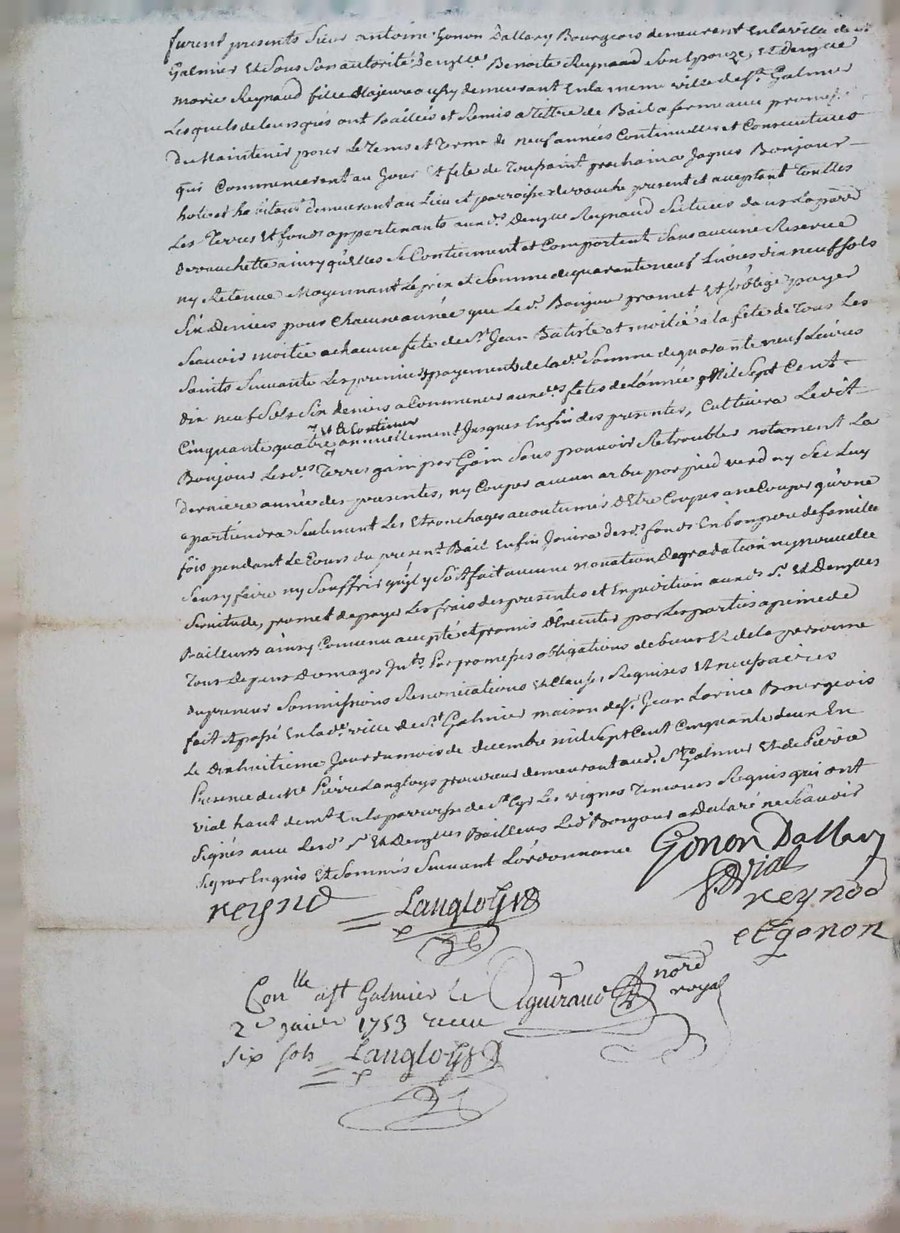 furent presents Sieur antoine Gonon Dallary Bourgeois demeurent En la ville de st
Galmier Et Sous Son autorité Benoite Reynaud Son Epouze, Et Demzlle
marie Reynaud fille Majeure demeurant En la meme ville de st. Galmier
Lesquels de leurs grés ont Baillés et Remis a tittre de Bail a ferme avec promesse
De Maintenir pour Le tems et terme de neuf années Continuelles et Consecutives
qui Commenceront au Jour Et féte de Toussaint prochain a Jaques Bonjour
hote et habitant demeurant au Lieu et parroisse de present et aceptant touttes
Les Terres Et fonds appartenants auxd. Demzlles Reynaud Scitues dans La parr
ainsy quelles Se Contienment et Comportent Sans aucune Reserve
ny Retenue Moyennant Le prix et Somme de quarante neuf Livres dix neuf Sols
Six Deniers pour Chacune année que Led. Bonjour promet Et Soblige payer
Scavoir moitié a chacune féte de St. Jean Batiste et moitié a la féte de Tous Les
Saints Suivante Les premiers payements de lad. Somme de quarante neuf Livres
dix neuf Sols Six deniers a Commencer auxd. fétes de Lannée Mil Sept Cent
Cinquante quatre et a Continuer annuellement Jusques Enfin des presentes, Cultivera Ledit
Bonjour Lesd. Terres gain par Gain Sans pouvoir Retroubler notament La
derniere année des presentes, ny Couper aucun arbre par pied verd ny Sec Luy
apartiendra Seulement Les Etronchages accoutumés D'Etre Coupés a ne Couper qu'une
fois pendant Le Cours du present Bail Enfin Jouira desd. fonds En bon pere de famille
Sans y faire ny Souffrir qu'il y Soit fait aucune novation Degradation ny nouvelle
Servitude, promet de payer Les frais des presentes et Expedition auxd. Sr. Et Demzlles
Bailleurs ainsy Convenu accepté et promis D'Executer par Les parties a peine de
Tous Depens Domages Ints. par promesses obligations de biens Et de la personne
du preneur Sommissions Renonciations Et Clauses Requises Et necessaires
fait Et passé En lad. ville de St Galmier maison de Sr. Jean Bourgeois
Le Dixhuitieme Jour du mois de decembre mil Sept Cent Cinquante deux En
Presence de Me Pierre Langloys procureur demeurant aud. St Galmier Et de Pierre
vial haut demt. En la parroisse de St Cyr Les vignes Temoins Requis qui ont
Signés avec Lesd. Sr Et Demzlles Bailleurs Led. Bonjour a Declaré ne Scavoir
Signer Enquis Et Sommés Suivant L'ordonnance Gonon Dallary
Vial
reynd Langloys reynod
et gonon
Conlle a St Galmier Le Aguiraud nore
2e janier 1753 receu royal
six sols Langloys